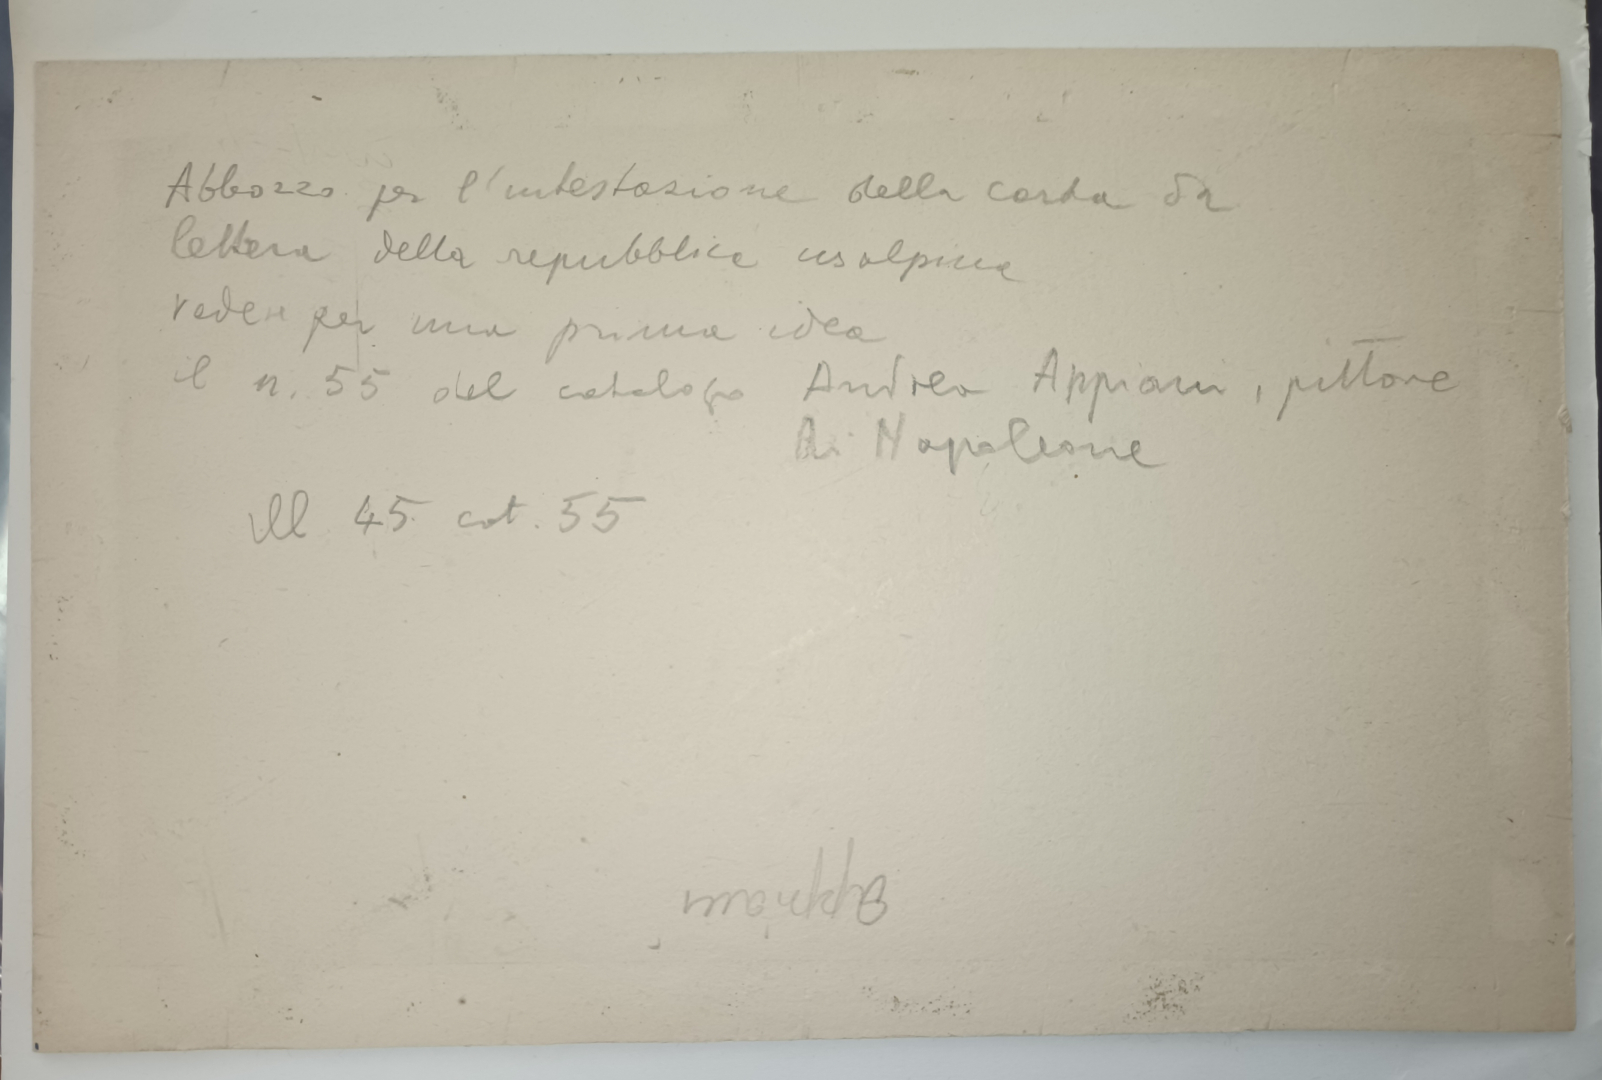 Abbozzo per l'intestazione della carta da
lettera della repubblica cisalpina
vedere per una prima idea
il n. 55 del catalogo Andrea Appiani, pittore
di Napoleone
Ill 45 cat. 55
Appiani